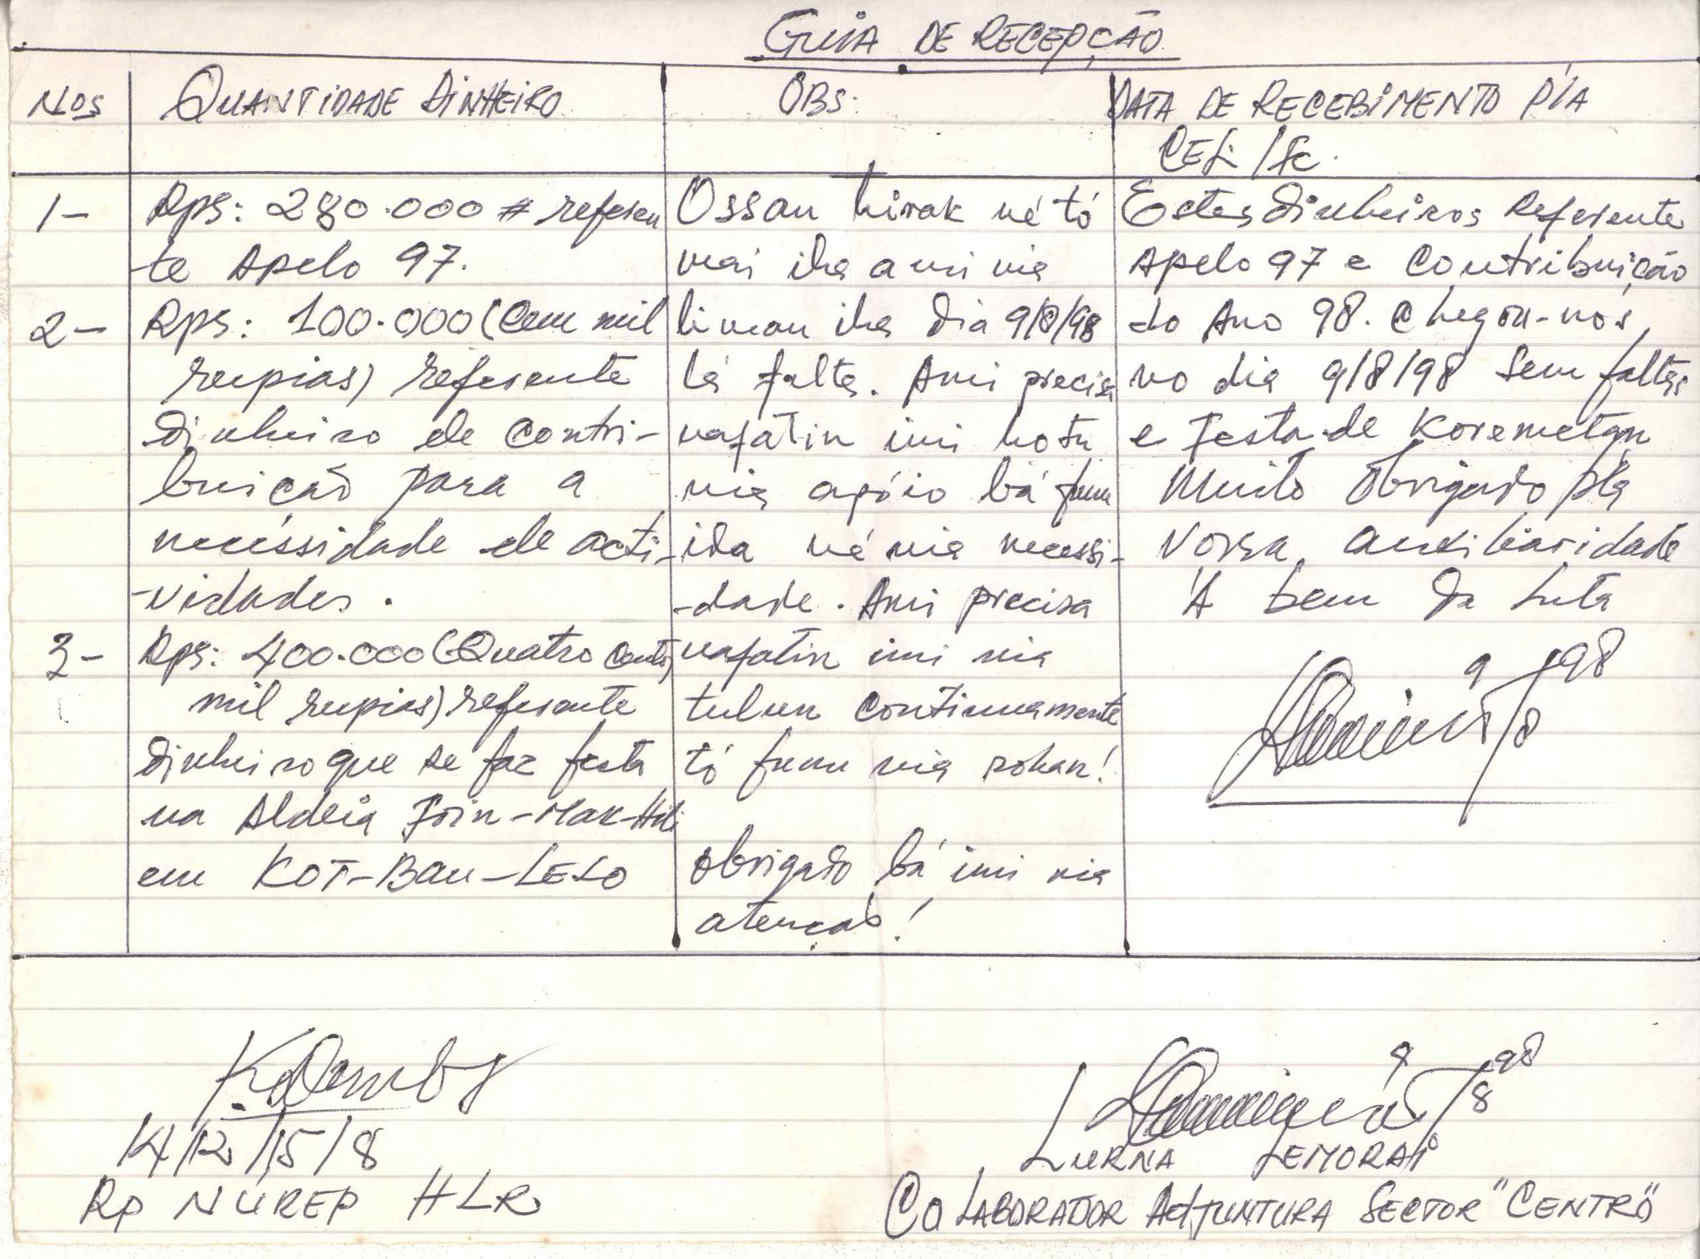 GUIA DE RECEPÇÃO
Nos
QUANTIDADE DINHEIRO
OBS:
DATA DE RECEBIMENTO P/A
CEL/FC.
1-
Rps: 280.000 # referen
te Apelo 97.
2-
Rps: 100.000 (Cem mil
rupias) referente
dinheiro de contri-
buição para a
necessidade de acti-
-vidades.
3-
Rps: 400.000 (Quatro centos
mil rupias) referente
dinheiro que se faz festa
na Aldeia Foin-Mak-Hili
em KOT-BAU-LELO
Ossan hirak né tó
mai iha ami nia
liman iha dia 9/8/98
lá falta. Ami precisa
nafatin imi hotu
nia apóio bá funu
ida né nia necessi-
-dade. Ami precisa
nafatin imi nia
tulun continuamente
tó funu nia rohan!
obrigado bá imi nia
atenção!
Estes dinheiros Referente
Apelo 97 e Contribuição
do Ano 98. Chegou-nos,
no dia 9/8/98 Sem faltas
e Festa de Koremetan
Muito Obrigado pla
Vossa auxiliaridade
A bem da Luta
9/8/98
K4/12/15/8
Rp NUREP HLR
9/8/98
LURNA LEMORAI
COLABORADOR ADJUNTURA SECTOR "CENTRO"